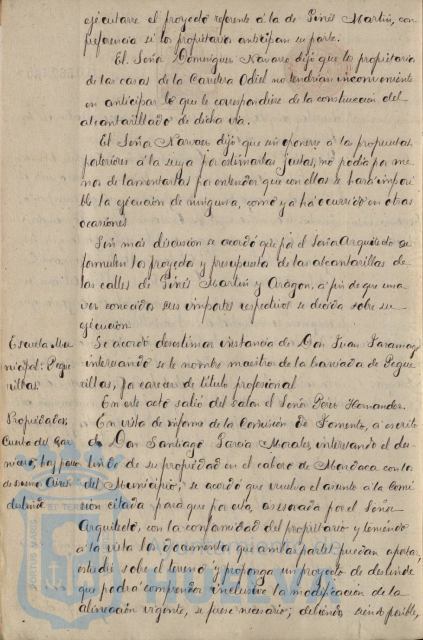 ejecutarse el proyecto referente á la de Ginés Martín, con
preferencia si los propietarios anticipan su parte.
El Señor Dominguez Navarro dijo que los propietarios
de las casas de la Carretera Odiel no tendrían inconveniente
en anticipar lo que le correspondiere de la construcción del
alcantarillado de dicha vía.
El Señor Narvaez dijo que sin oponerse á las propuestas
posteriores á la suya por estimarlas justas, no podía por me-
nos de lamentarlas por entender que con ellas se hará imposi-
ble la ejecución de ninguna, como ya há ocurrido en otras
ocasiones
Sin más discusión se acordó que por el Señor Arquitecto se
formulen los proyectos y presupuestos de las alcantarillas de
las calles de Ginés Martín y Aragon, á fin de que una
vez conocidos sus importes respectivos se decida sobre su
ejecución
Escuela Mu-
nicipal: Pegue-
rillas.
Se acordó desestimar instancia de Don Juan
interesando se le nombre maestro de la barriada de Pegue-
rillas, por carecer de título profesional
En este acto salió del salon el Señor Perez Hernandez.
Propiedades:
del Car-
nicero, hoy paseo
de Buenos Aires
deslinde
En vista de informe de la Comisión de Fomento, á escrito
de Don Santiago García Morales, interesando el des-
linde de su propiedad en el cabezo de Mondaca con la
del Municipio; se acordó que vuelva el asunto á la Comi-
sion citada para que por esta, asesorada por el Señor
Arquitecto, con la conformidad del propietario y teniendo
á la vista los documentos que ambas partes puedan aportar,
estudie sobre el terreno y proponga un proyecto de deslinde
que podrá comprender inclusive la modificación de la
alineación vigente, si fuese necesario; debiendo, siendo posible,